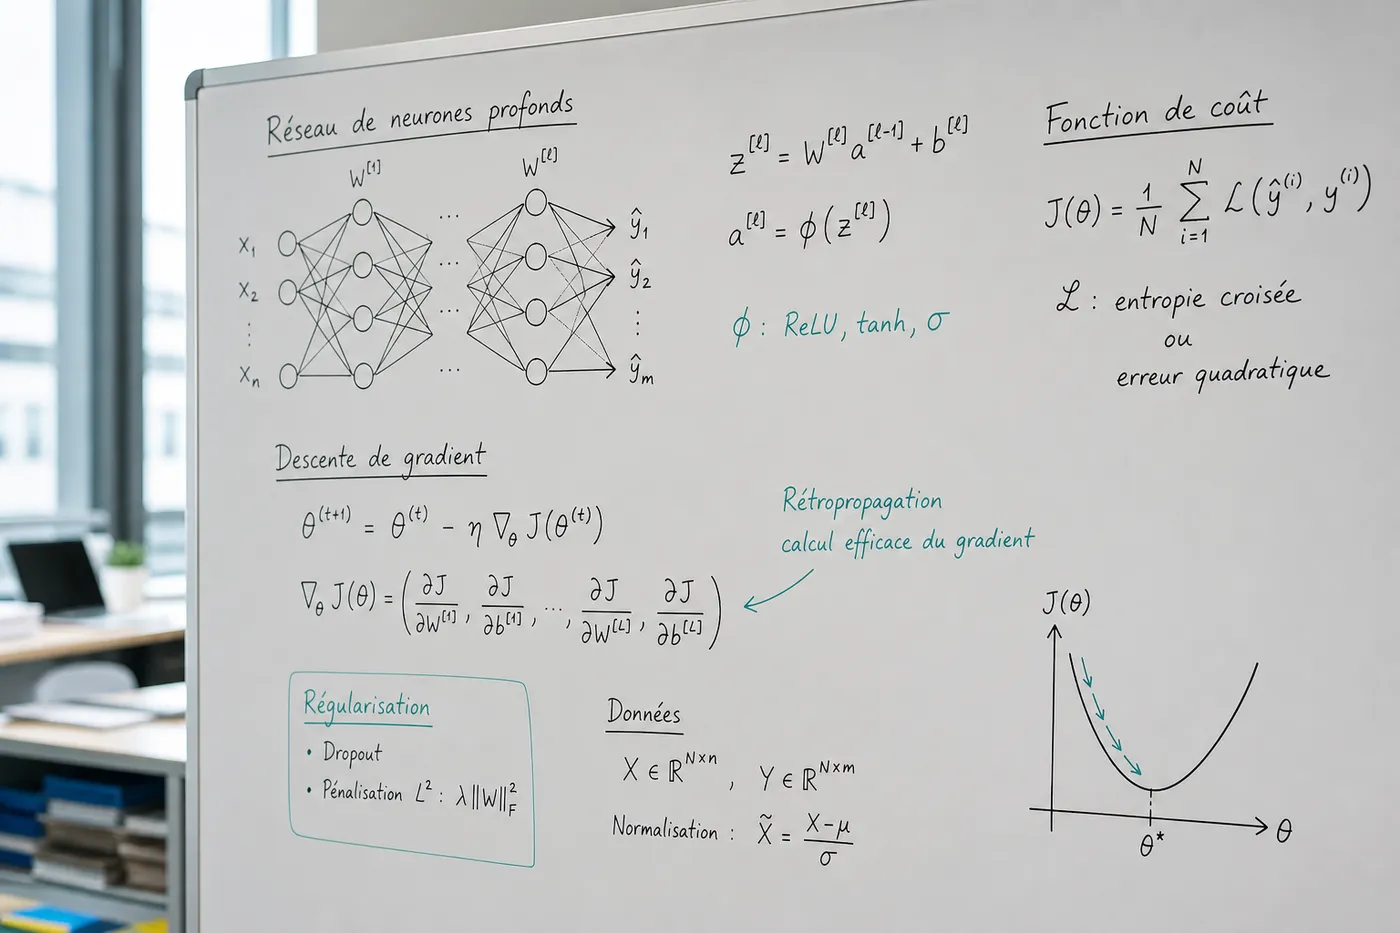 Réseau de neurones profonds
W^[1] W^[ℓ]
x₁ ... ŷ₁
x₂ ... ŷ₂
⋮ ... ⋮
xₙ ... ŷₘ
z^[ℓ] = W^[ℓ] a^[ℓ-1] + b^[ℓ]
a^[ℓ] = ϕ(z^[ℓ])
ϕ : ReLU, tanh, σ
Fonction de coût
J(θ) = 1/N ∑_{i=1}^{N} ℒ(ŷ^(i), y^(i))
ℒ : entropie croisée
ou
erreur quadratique
Descente de gradient
θ^(t+1) = θ^(t) − η ∇_θ J(θ^(t))
∇_θ J(θ) = (∂J/∂W^[1], ∂J/∂b^[1], ..., ∂J/∂W^[L], ∂J/∂b^[L])
Rétropropagation
calcul efficace du gradient
Régularisation
• Dropout
• Pénalisation L² : λ‖W‖²_F
Données
X ∈ ℝ^{N×n} , Y ∈ ℝ^{N×m}
Normalisation : X̃ = (X−μ)/σ
J(θ)
θ
θ*